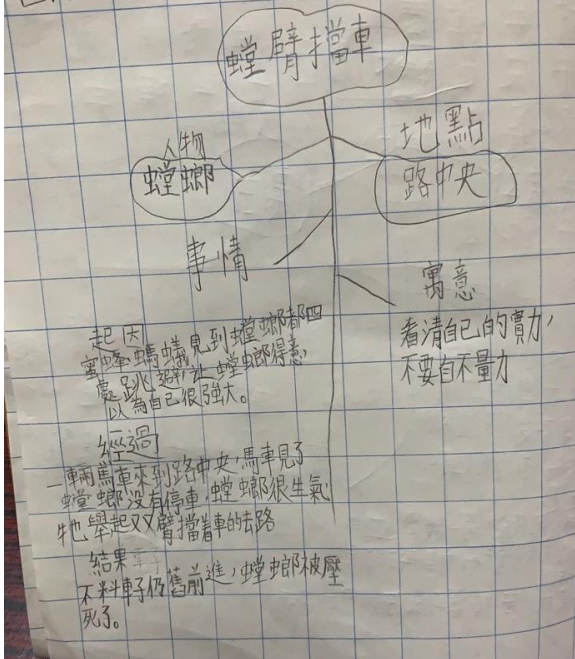 螳臂擋車
人物
螳螂
地點
路中央
事情
寓意
看清自己的實力,
不要自不量力
起因
蜜蜂、螞蟻見到螳螂都四
處跳避,讓螳螂得意,
以為自己很強大。
經過
一輛馬車來到路中央,馬車見了
螳螂沒有停車,螳螂很生氣,
牠舉起双臂擋着車的去路
結果
不料車子仍舊前進,螳螂被壓
死了。